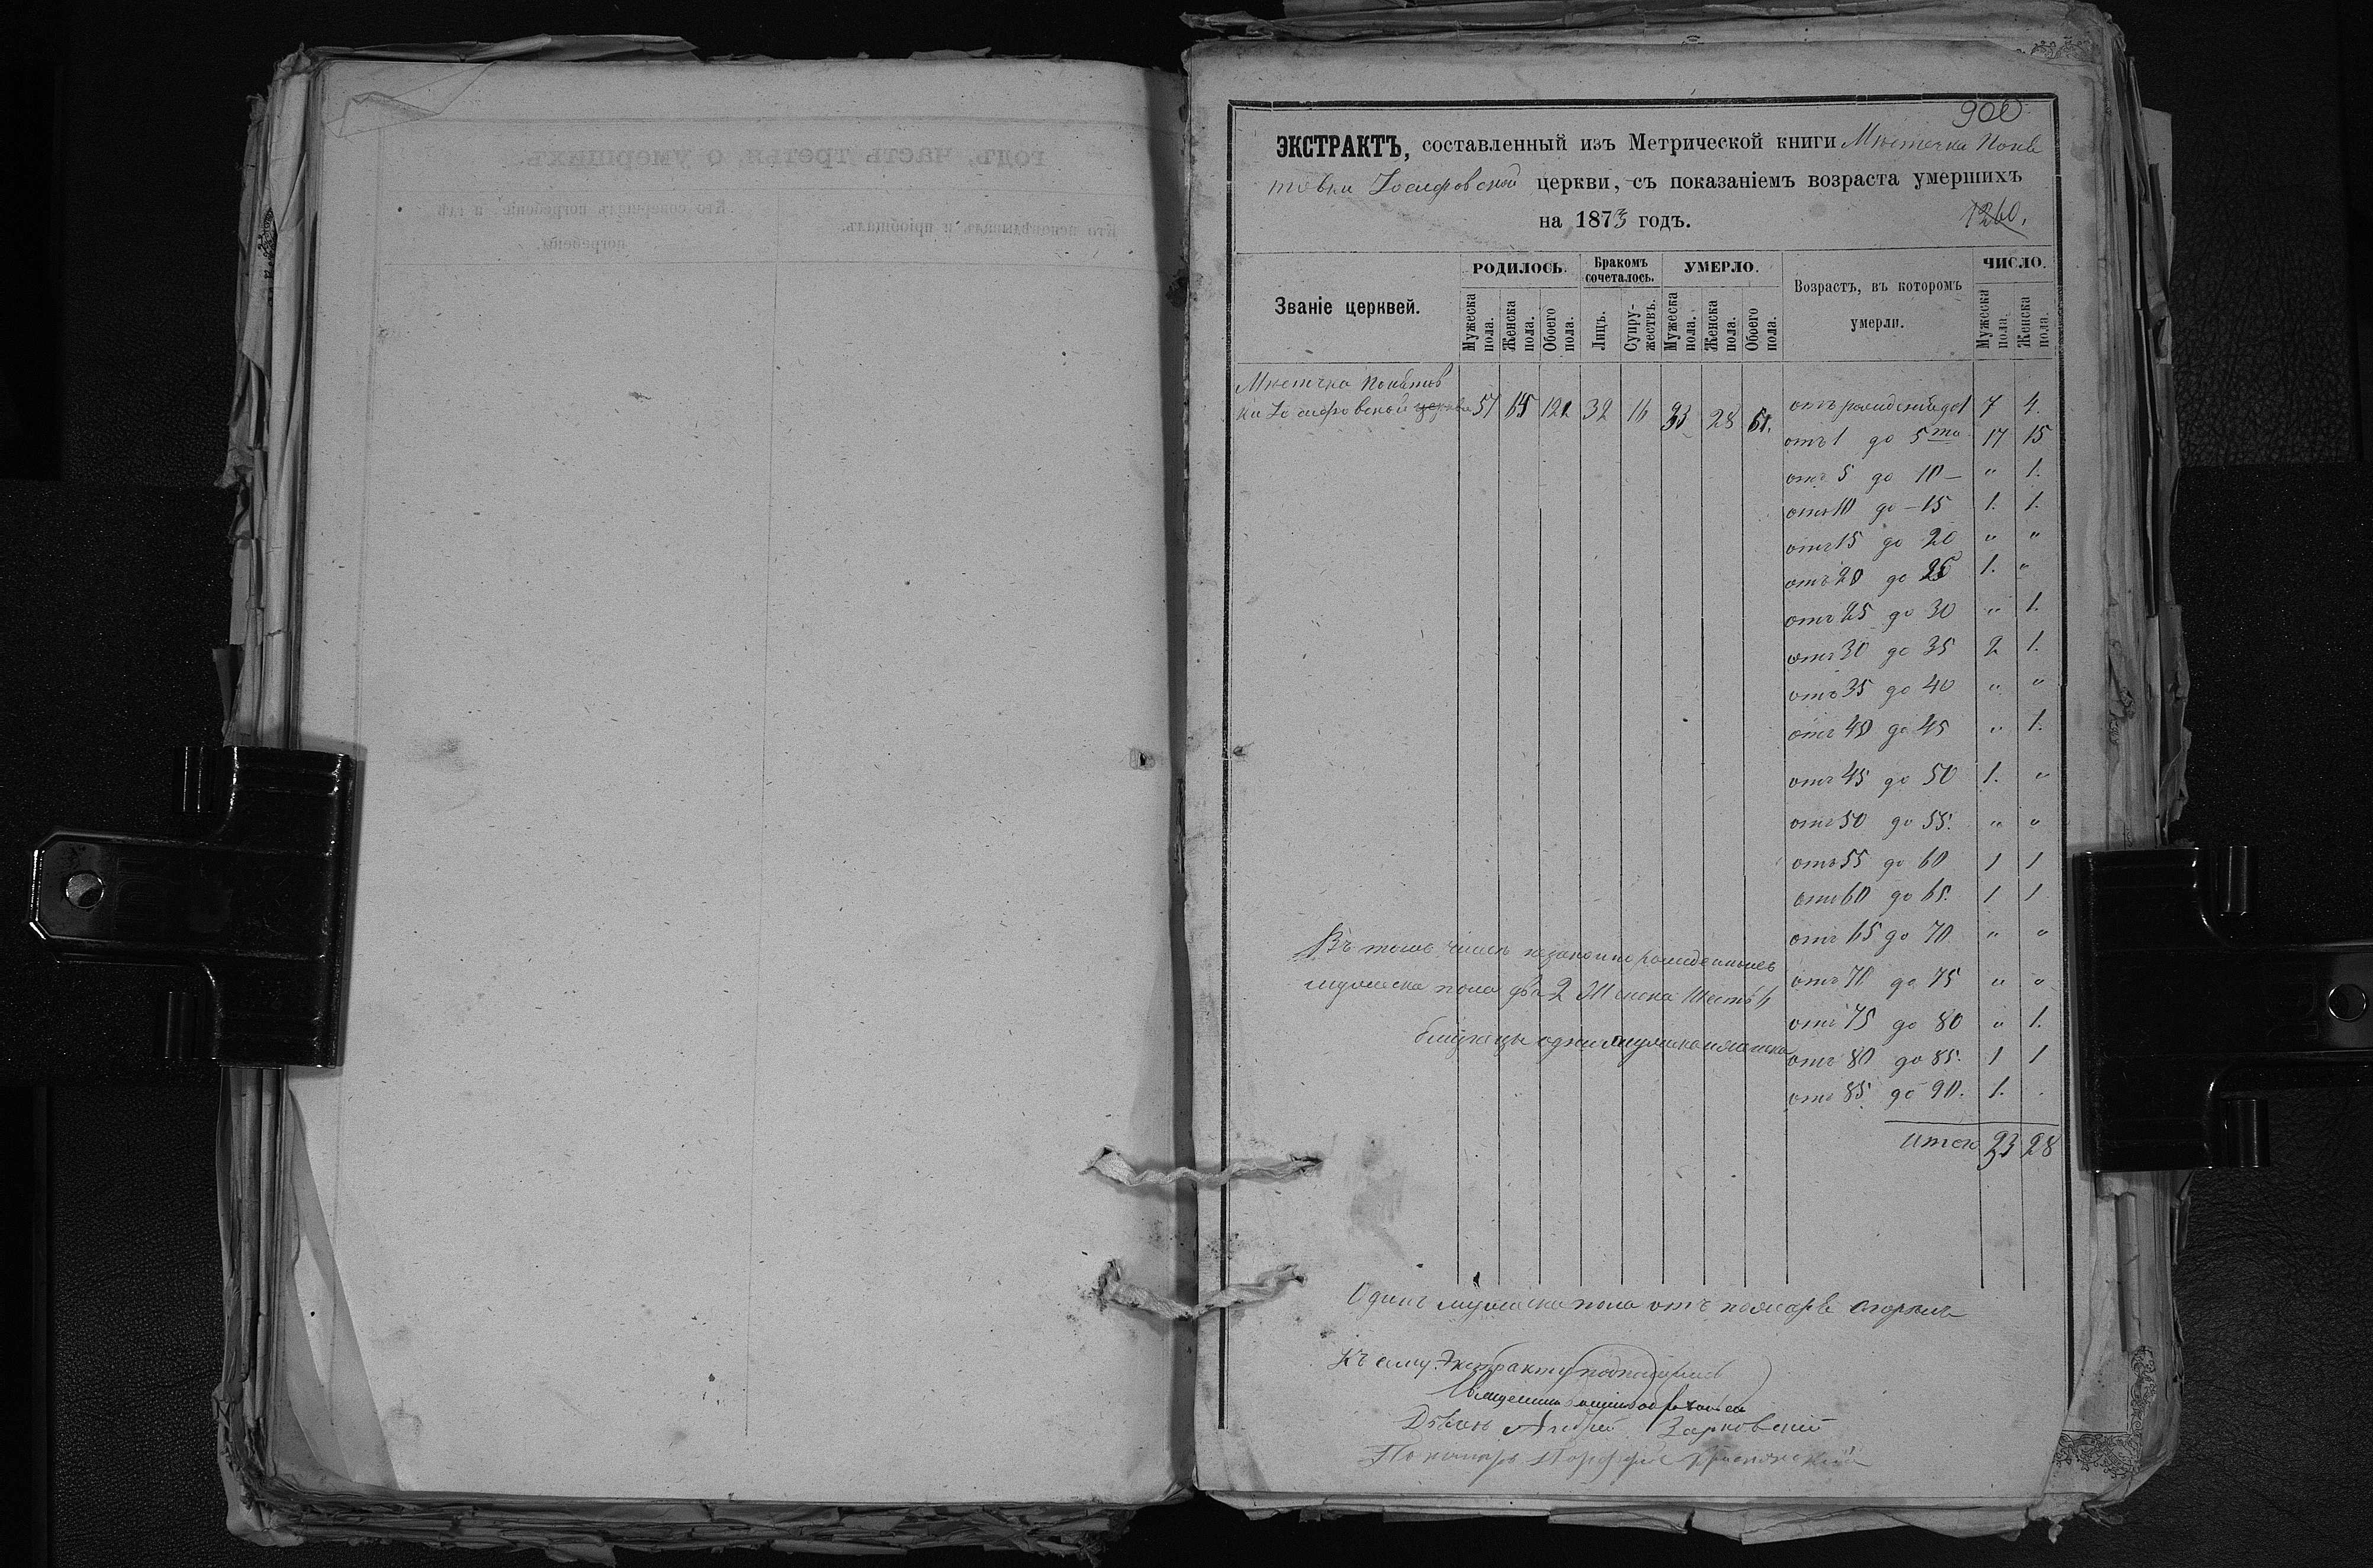 900
ЭКСТРАКТЪ, составленный изъ Метрической книги Мѣстечка Понѣ
товки Іосифовской церкви, съ показаніемъ возраста умершихъ
на 1873 годъ.
1260.
Званіе церквей.
РОДИЛОСЬ.
Бракомъ сочеталось.
УМЕРЛО.
Возрастъ, въ которомъ умерли.
ЧИСЛО.
Мужеска пола.
Женска пола.
Обоего пола.
Лицъ.
Супружествъ.
Мужеска пола.
Женска пола.
Обоего пола.
Мужеска пола.
Женска пола.
Мѣстечка Понѣтов
ки Іосифовской церкви 57 65 121 32 16 33 28 61.
отъ рожденія до 1 7 4.
отъ 1 до 5ти 17 15
отъ 5 до 10 — " 1.
отъ 10 до — 15 1. 1.
отъ 15 до 20 " "
отъ 20 до 25 1. "
отъ 25 до 30 " 1.
отъ 30 до 35 2 1.
отъ 35 до 40 " "
отъ 40 до 45 " 1.
отъ 45 до 50 1. "
отъ 50 до 55. " "
отъ 55 до 60 1 1
отъ 60 до 65. 1 1
отъ 65 до 70 " "
отъ 70 до 75 " "
отъ 75 до 80 " 1.
отъ 80 до 85. 1 1
отъ 85 до 90. 1.
Итого 33 28
Въ томъ числѣ незаконнорожденныхъ
мужеска пола два 2 Женска шесть 6
близнецы одни мужеска и женска
Одинъ мужеска пола отъ пожара сгорѣлъ
Къ сему Экстракту подписались
Священникъ
Дьякъ Андрей Зарковскій
Пономарь Порфирій